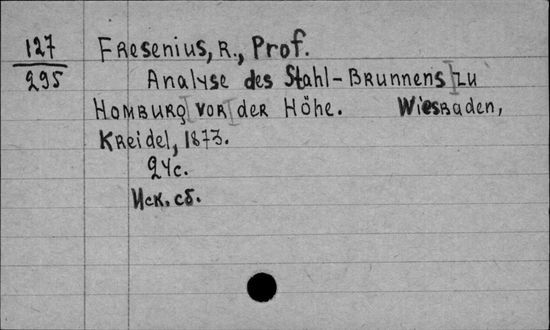 127
295
Fresenius, R., Prof.
Analyse des Stahl-Brunnens] zu
Homburg [vor] der Höhe. Wiesbaden,
Kreidel, 1873.
24c.
Иск. сб.